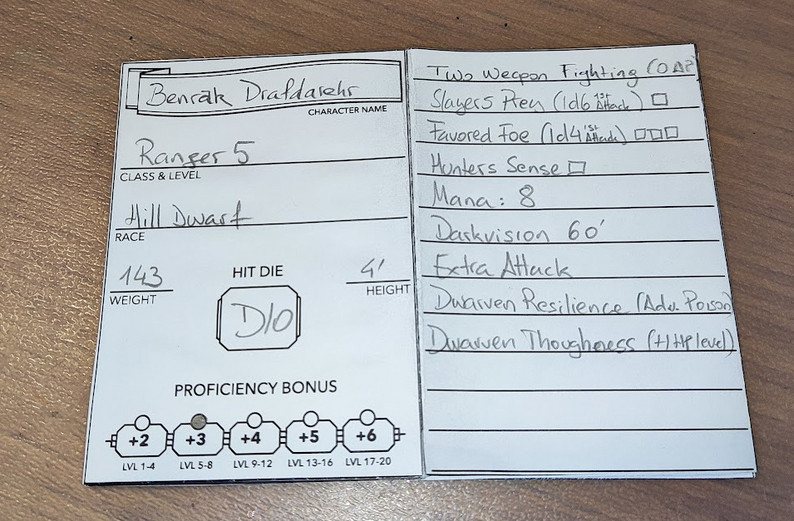 Benrak Drafdarehr
CHARACTER NAME
Ranger 5
CLASS & LEVEL
Hill Dwarf
RACE
143
WEIGHT
HIT DIE
D10
4'
HEIGHT
PROFICIENCY BONUS
+2 +3 +4 +5 +6
LVL 1-4 LVL 5-8 LVL 9-12 LVL 13-16 LVL 17-20
Two Weapon Fighting
Slayers Prey (1d6 1st Attack)
Favored Foe (1d4 1st Attack)
Hunters Sense
Mana: 8
Darkvision 60'
Extra Attack
Dwarven Resilience (Adv. Poison)
Dwarven Thoughness (+1 HP level)